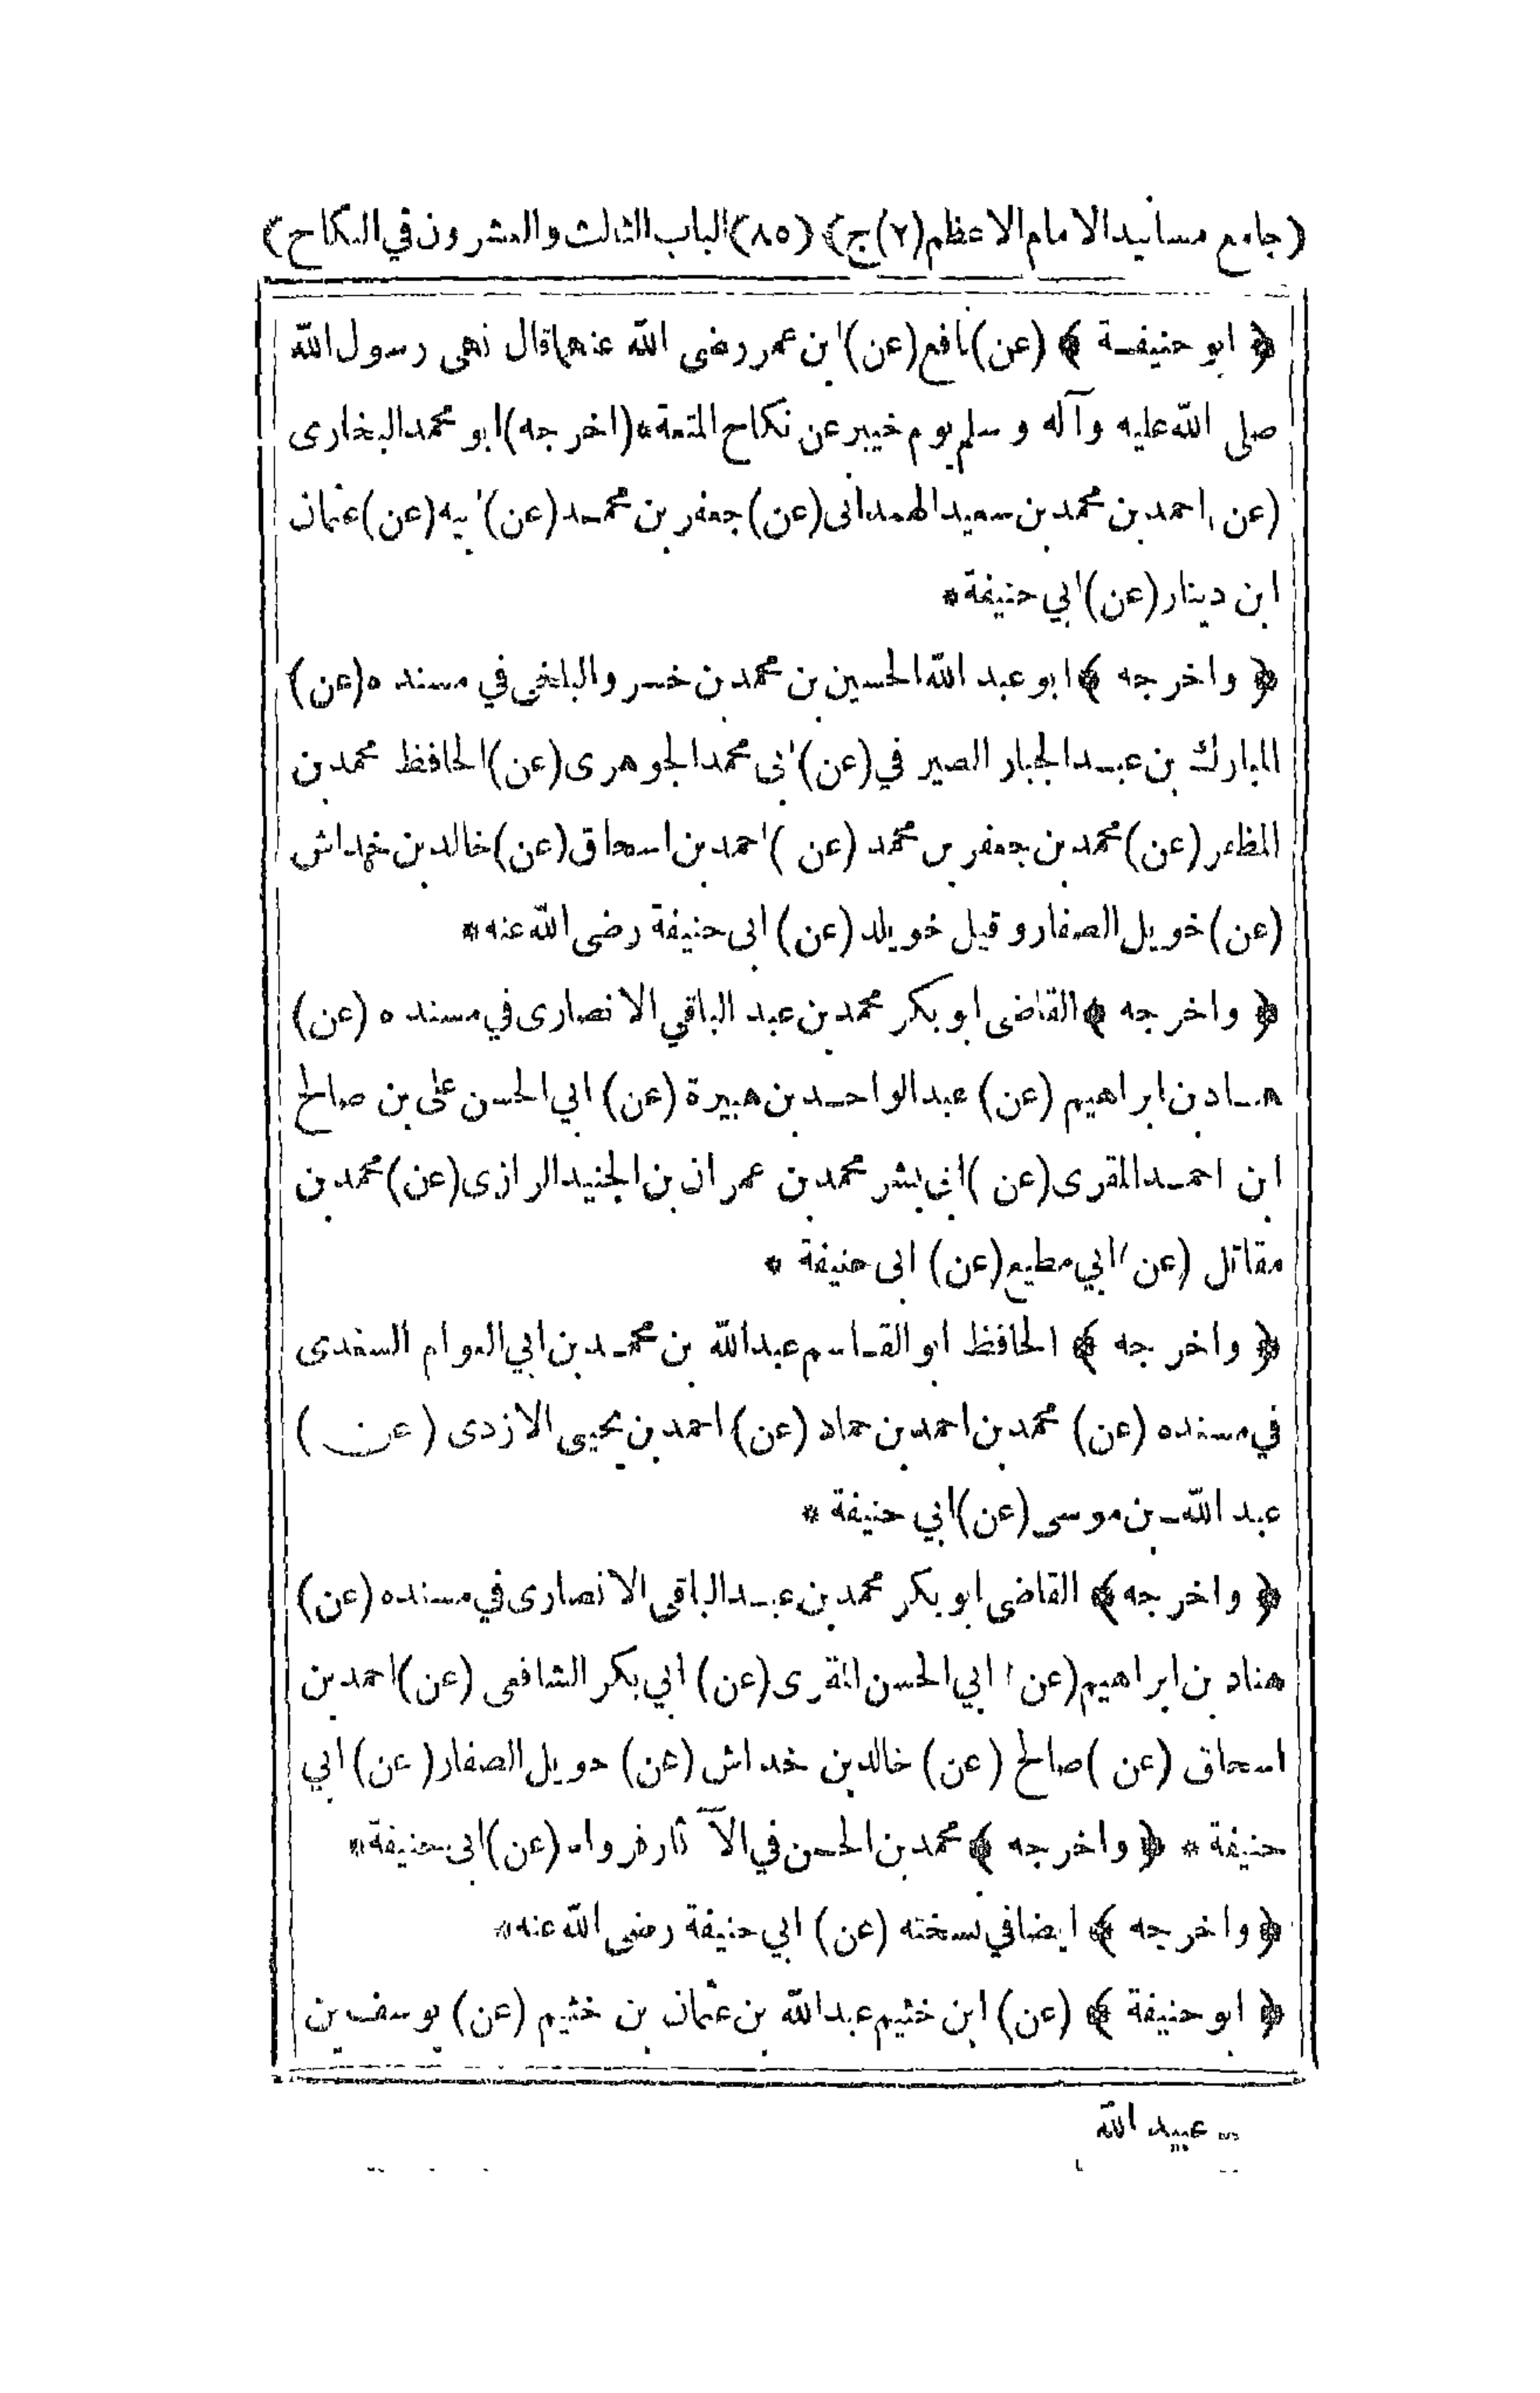 (جامع مسانيد الامام الاعظم (٢) ج) (٨٥) (الباب الثالث والعشرون في النكاح)
﴿ ابو حنيفة ﴾ (عن) نافع (عن) ابن عمر رضى الله عنهما قال نهى رسول الله
صلى الله عليه وآله وسلم يوم خيبر عن نكاح المتعة * (اخرجه) ابو محمد البخارى
(عن) احمد بن محمد بن سعيد الهمدانى (عن) جعفر بن محمد (عن) ابيه (عن) عثمان
ابن دينار (عن) ابي حنيفة *
﴿ واخرجه ﴾ ابو عبد الله الحسين بن محمد بن خسرو البلخى في مسنده (عن)
المبارك بن عبد الجبار الصيرفي (عن) ابى محمد الجوهرى (عن) الحافظ محمد بن
المظفر (عن) محمد بن جعفر بن محمد (عن) احمد بن اسحاق (عن) خالد بن خداش
(عن) خويل الصفار وقيل خويلد (عن) ابى حنيفة رضى الله عنه *
﴿ واخرجه ﴾ القاضى ابو بكر محمد بن عبد الباقي الانصارى في مسنده (عن)
هناد بن ابراهيم (عن) عبد الواحد بن هبيرة (عن) ابي الحسن على بن صالح
ابن احمد المقرى (عن) ابى بشر محمد بن عمران بن الجنيد الرازى (عن) محمد بن
مقاتل (عن) ابي مطيع (عن) ابى حنيفة *
﴿ واخرجه ﴾ الحافظ ابو القاسم عبد الله بن محمد بن ابي العوام السغدى
في مسنده (عن) محمد بن احمد بن حماد (عن) احمد بن يحيى الازدى (عن)
عبد الله بن موسى (عن) ابي حنيفة *
﴿ واخرجه ﴾ القاضى ابو بكر محمد بن عبد الباقى الانصارى في مسنده (عن)
هناد بن ابراهيم (عن) ابي الحسن المقرى (عن) ابي بكر الشافعى (عن) احمد بن
اسحاق (عن) صالح (عن) خالد بن خداش (عن) خويل الصفار (عن) ابي
حنيفة * ﴿ واخرجه ﴾ محمد بن الحسن في الآثار فرواه (عن) ابى حنيفة *
﴿ واخرجه ﴾ ايضا في نسخته (عن) ابي حنيفة رضى الله عنه *
﴿ ابو حنيفة ﴾ (عن) ابن خثيم عبد الله بن عثمان بن خثيم (عن) يوسف بن
عبيد الله